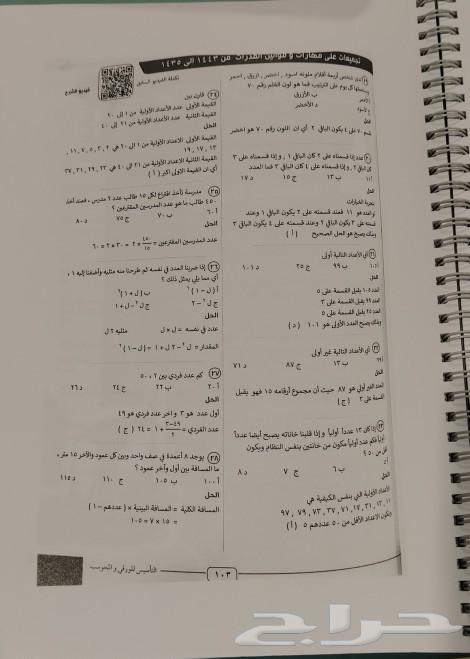 تجميعات على مهارات و قوانين القدرات من ١٤٤٣ الى ١٤٣٥
لدى شخص أربعة أقلام ملونه اسود , اخضر , ازرق , احمر
كل يوم على الترتيب فما هو لون القلم رقم ٧٠
ب الأزرق
د الأخضر
الحل
٧٠ على ٤ يكون الباقي ٢ أي ان اللون رقم ٧٠ هو اخضر
عدد إذا قسمناه على ٢ كان الباقي ١ , وإذا قسمناه على ٣
كان الباقي ٢ , وإذا قسمناه على ٤ كان الباقي ٣ فما العدد
ب ١٣
ج ١٥
د ١٧
الحل
بتجربة الخيارات
العدد هو ١١ فعند قسمته على ٢ يكون الباقي ١ وعند
قسمته على ٣ يكون الباقي ٢ وعند قسمته على ٤ يكون الباقي ٣
وبذلك يصبح هو الحل الصحيح ( أ )
٢١ أي الأعداد التالية أولى
ب ٩٩
ج ٢٥
د ١٠١
الحل
العدد ١٠٥ يقبل القسمة على ٥
العدد ٩٩ يقبل القسمة على ٣
العدد ٢٥ يقبل القسمة على ٥
وبذلك يصبح العدد الأولى هو ١٠١ ( د )
٢٢ أي الأعداد التالية غير أولى
ب ١٣
ج ٨٧
د ٧١
الحل
العدد الغير أولى هو ٨٧ حيث أن مجموع أرقامه ١٥ فهو يقبل
القسمة على ٣ ( ج )
٢٣ إذا كان ١٣ عدداً أولياً و إذا قلبنا خاناته يصبح أيضا عدداً
أولياً فكم عدد أولياً مكون من خانتين بنفس النظام ويكون
أقل من ٥٠
ب ٦
ج ٧
د ٨
الحل
الأعداد الأولية التي بنفس الكيفية هي
١١ , ١٣ , ١٧ , ٣١ , ٣٧ , ٧١ , ٧٣ , ٧٩ , ٩٧
ويكون الأعداد الأقل من ٥٠ عددهم ٥ ( أ )
تكملة الفيديو السابق
فيديو الشرح
٢٤ قارن بين
القيمة الأولى عدد الأعداد الأولية من ١ إلى ٢٠
القيمة الثانية عدد الأعداد الأولية من ٢١ إلى ٤٠
الحل
القيمة الأولى الأعداد الأولية من ١ الى ٢٠ هي ٢ , ٣ , ٥ , ٧ , ١١ ,
١٣ , ١٧ , ١٩
القيمة الثانية الأعداد الأولية من ٢١ الى ٤٠ هي ٢٣ , ٢٩ , ٣١ , ٣٧
أي ان القيمة الأولى اكبر ( أ )
٢٥ مدرسة تأخذ اقتراع لكل ١٥ طالب عدد ٢ مدرس , فعند أخذ
٤٥٠ طالب ما هو عدد المدرسين المقترعين ؟
أ ٦٠
ب ٧٠
ج ٧٥
د ٨٠
الحل
عدد المدرسين المقترعين = ٤٥٠/١٥ × ٢ = ٣٠ × ٢ = ٦٠
٢٦ إذا ضربنا العدد في نفسه ثم طرحنا منه مثليه وأضفنا إليه ١ ,
أي مما يلي يمثل ذلك ؟
أ ( ل - ١ )²
ب ( ل + ١ )²
ج ل² - ٢
د ل² - ل + ١
الحل
عدد في نفسه = ل × ل
مثليه ٢ ل
المقدار = ل² - ٢ ل + ١ = ( ل - ١ )²
٢٧ كم عدد فردي بين ٢ , ٥٠
أ ٢٠
ب ٢٢
ج ٢٤
د ٢٦
الحل
أول عدد هو ٣ و اخر عدد فردي هو ٤٩
عدد الفردي = ٤٩-٣/٢ + ١ = ٢٤ ( ج )
٢٨ يوجد ٨ أعمدة في صف واحد وبين كل عمود والآخر ١٥ متر ,
ما المسافة بين أول وآخر عمود ؟
أ ١٠٠
ب ١٠٥
ج ١١٠
د ١١٥
الحل
المسافة الكلية = المسافة البينية × ( عددهم - ١ )
= ١٥ × ٧ = ١٠٥
١٠٣
التأسيس للورقي و المحوسب
حراج